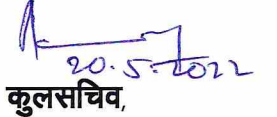 20.5.2022
कुलसचिव,